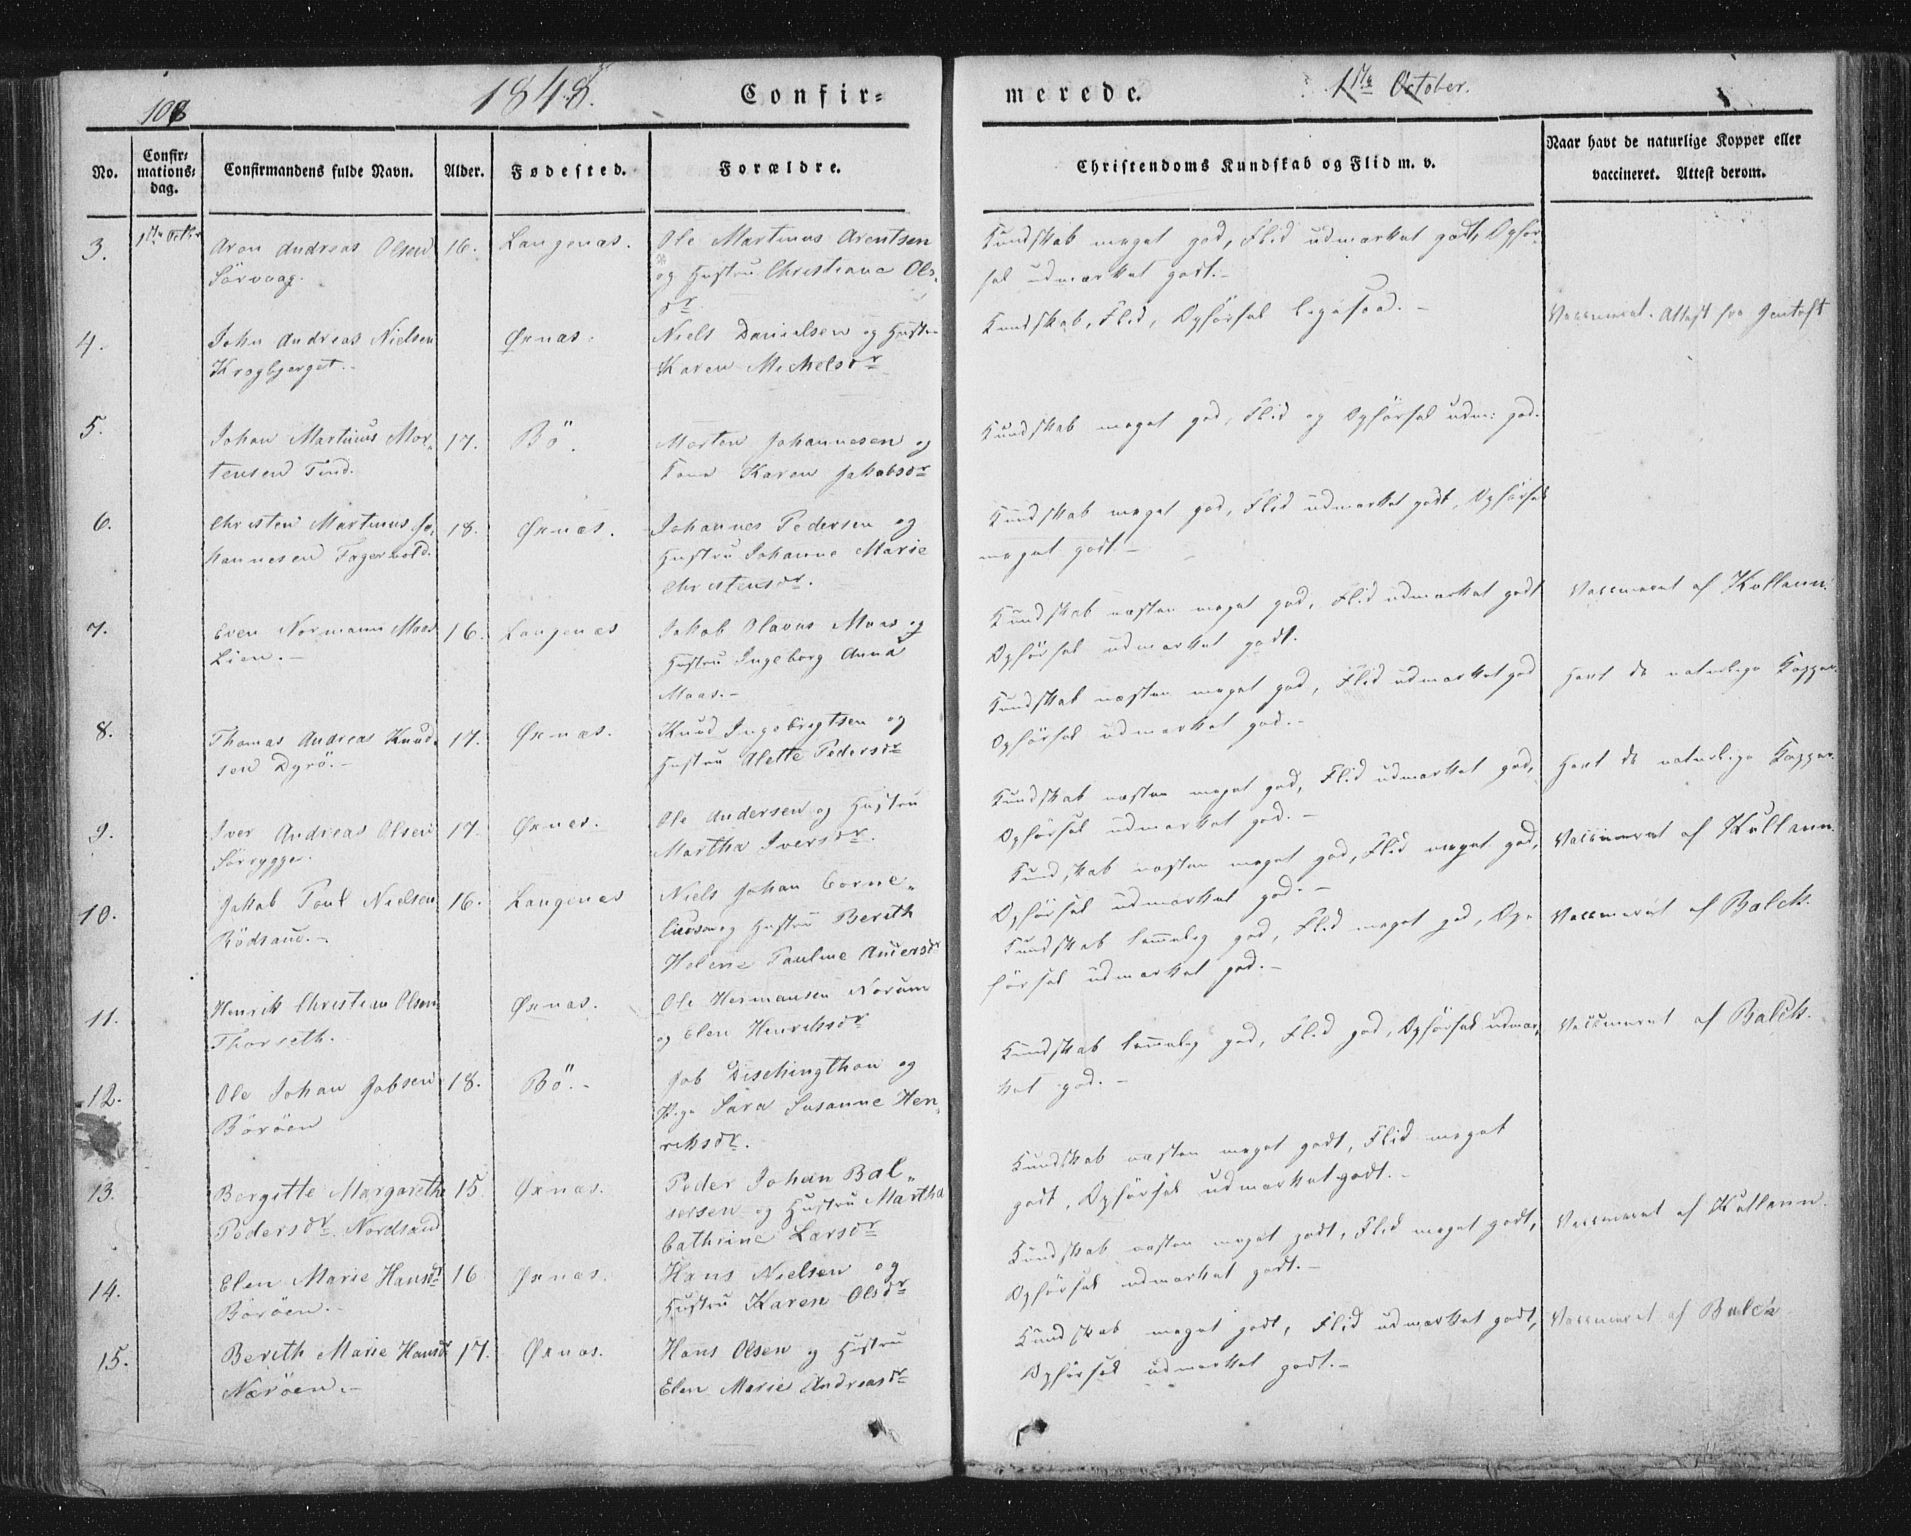 108
1848.
Confir=
merede.
1ste October.
No.
Confir=
mations=
dag.
Confirmandens fulde Navn.
Alder.
Fødested.
Forældre.
Christendoms Kundskab og Flid m. v.
Naar havt de naturlige Kopper eller
vaccineret. Attest derom.
3.
1ste Octbr
Aron Andreas Olsen
Sörvaag.
16.
Langenæs.
Ole Martinus Arentsen
og Hustru Christiana Ols-
dr.
Kundskab meget god, Flid udmærket godt, Opför-
sel udmærket godt.-
4.
John Andreas Nielsen
Krogbjerget.-
Øxnæs.
Niels Danielsen og Hustru
Karen Michelsdr
Kundskab, Flid, Opförsel ligesaa.-
Vaccineret. Attest fra
5.
Johan Martinus Mor-
tensen Tind.
17.
Bö.
Morten Johannesen og
Karen Jakobsdr
Kundskab meget god, Flid og Opförsel udm: god.
6.
Christen Martinus Jo-
hannesen Fagervold.
18.
Øxnæs.
Johannes Pedersen og
Hustru Johanne Marie
Christensdr.
Kundskab meget god, Flid udmærket godt, Opförsel
meget godt-
7.
Even Normann Maas
Lien.-
16.
Langenæs
Jakob Olavus Maas og
Hustru Ingeborg Anna
Maas.-
Kundskab næsten meget god, Flid udmærket godt
Opförsel udmærket godt.
Vaccineret af Kullann.
8.
Thomas Andreas Knud-
sen Dyrö.-
17.
Øxnæs.
Knud Ingebrigtsen og
Hustru Alette Pedersdr
Kundskab næsten meget god, Flid udmærket god
Opförsel udmærket god.-
Havt de naturlige Kopper.
9.
Iver Andreas Olsen
Sörrygge.
17.
Øxnæs.
Ole Andersen og Hustru
Martha Iversdr.
Kundskab næsten meget god, Flid udmærket god,
Opförsel udmærket god.-
Havt de naturlige Kopper.
10.
Jakob Poul Nielsen
Rödsand.-
16.
Langenæs
Niels Johan Corne-
liusen og Hustru Berith
Helene Pauline Andersdr
Kundskab næsten meget god, Flid meget god,
Opförsel udmærket god.-
Vaccineret af Kullann.
11.
Henrik Christian Olsen
Thorseth.
Øxnæs.
Ole Hermansen Norum
og Elen Henriksdr
Kundskab temmelig god, Flid meget god, Op-
försel udmærket god.-
Vaccineret af Balck.
12.
Ole Johan Jobsen
Böröen
18.
Bö.-
Job Dischingthon og
Pige Sara Susanne Hen-
riksdr.
Kundskab temmelig god, Flid god, Opförsel udmær-
ket god.-
Vaccineret af Balck.
13.
Bergitte Margarethe
Pedersdr. Nordsand
15
Øxnæs.
Peder Johan Bal-
sersen og Hustru Martha
Cathrine Larsdr
Kundskab næsten meget godt, Flid meget
godt, Opförsel udmærket godt.-
14.
Elen Marie Hansdr
Böröen.-
16
Øxnæs.
Hans Nielsen og
Hustru Karen Olsdr
Kundskab næsten meget godt, Flid meget godt,
Opförsel udmærket godt.-
Vaccineret af Kullann.
15.
Berith Marie Hansdr
Næröen.-
17.
Øxnæs.
Hans Olsen og Hustru
Elen Marie Andreasdr
Kundskab meget godt, Flid udmærket godt,
Opförsel udmærket godt.-
Vaccineret af Balck